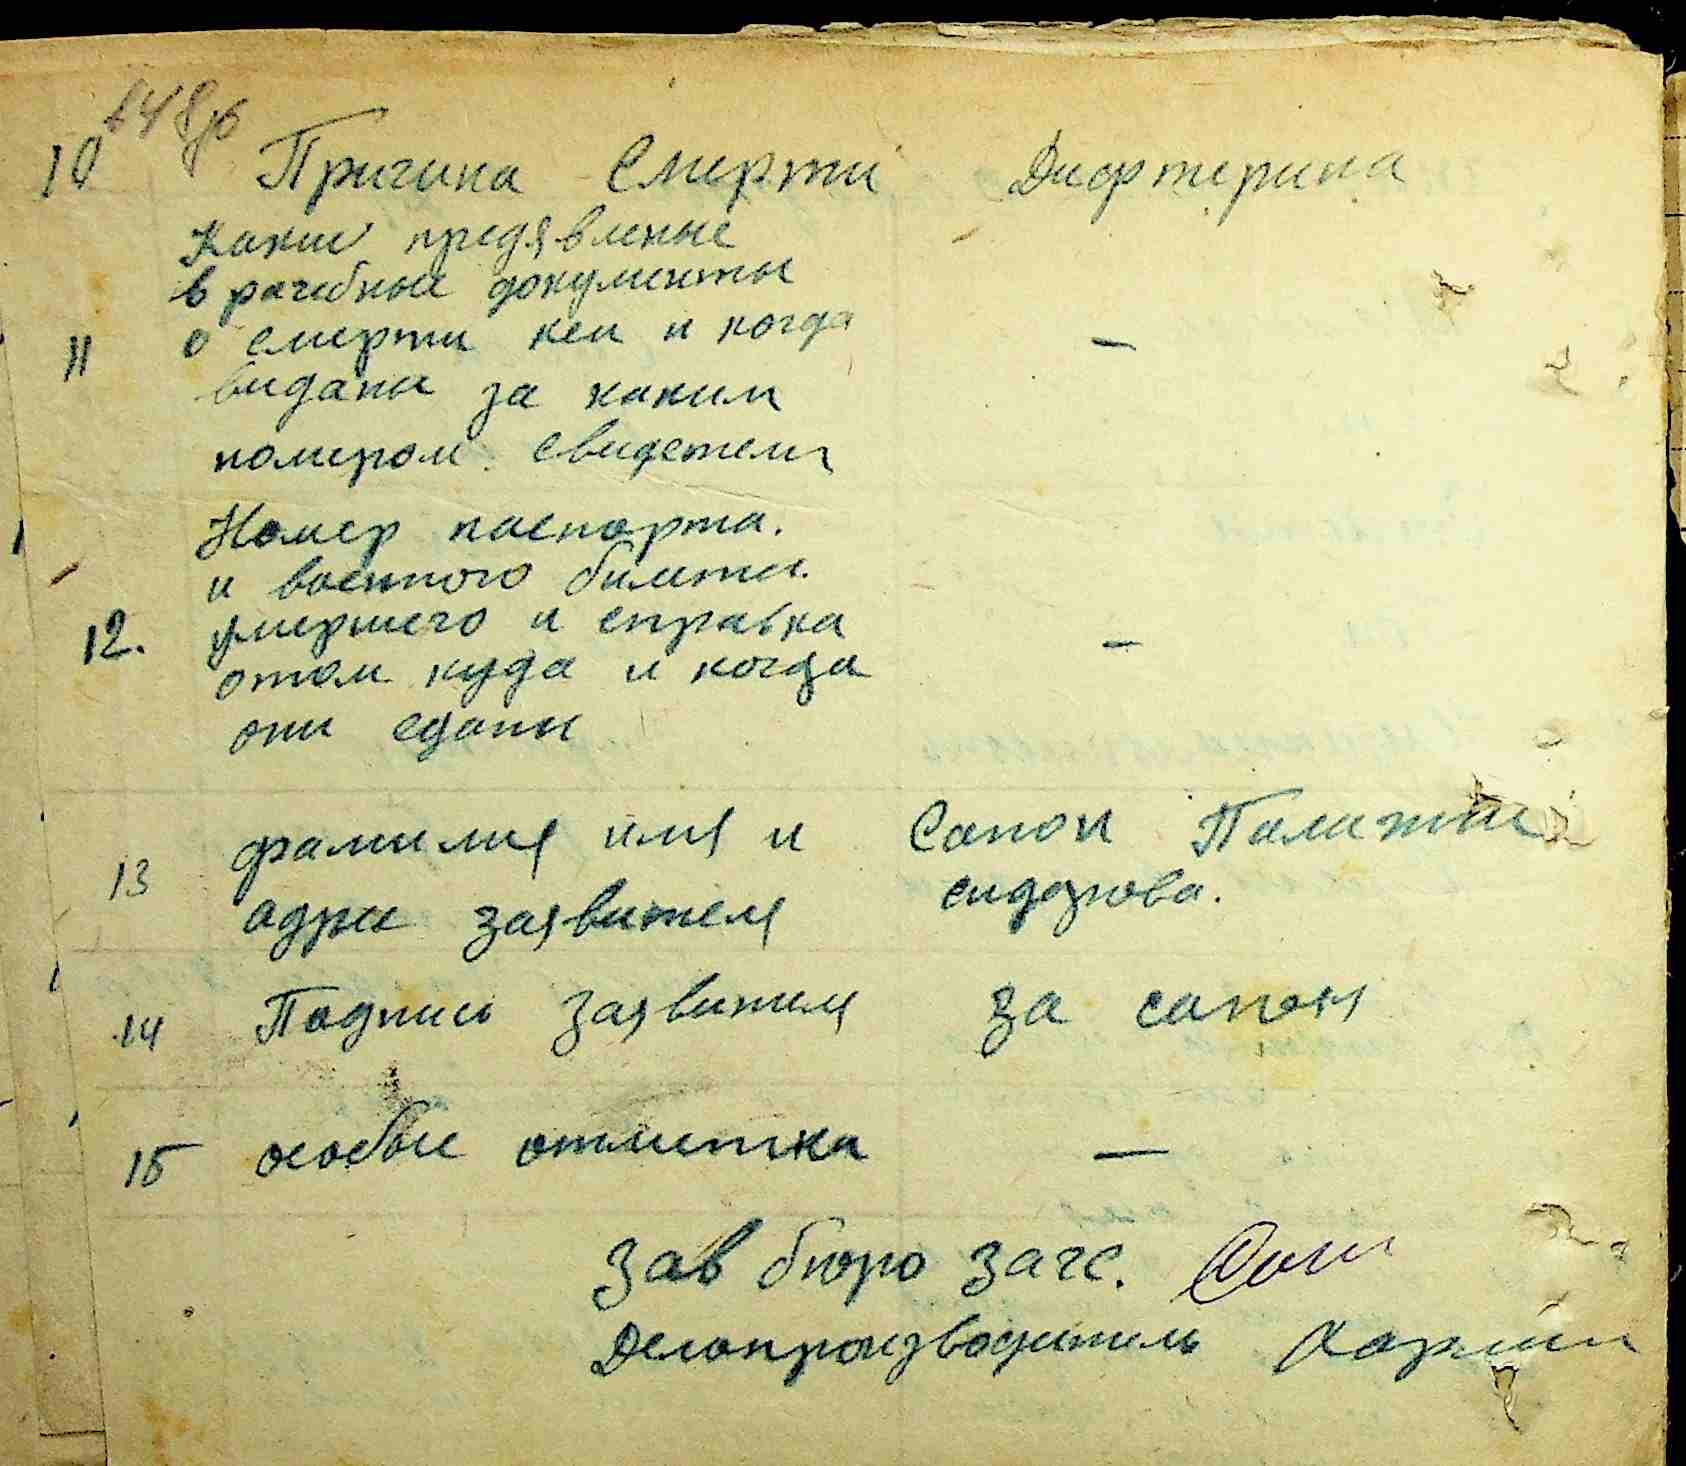 10 Причина Смерти Дифтерина
Какие предявленые
врачебные документы
11 о смерти кем и когда —
видани за каким
номером свидетели
Номер паспорта.
и военного билети.
12. умершего и справка —
отом куда и когда
они сдани
фамилия имя и Сапон
13 сидорова.
адрес заявителя
14 Подпись заявителя За сапон
15 особые отметка —
Зав бюро загс.
Делопроизводитель